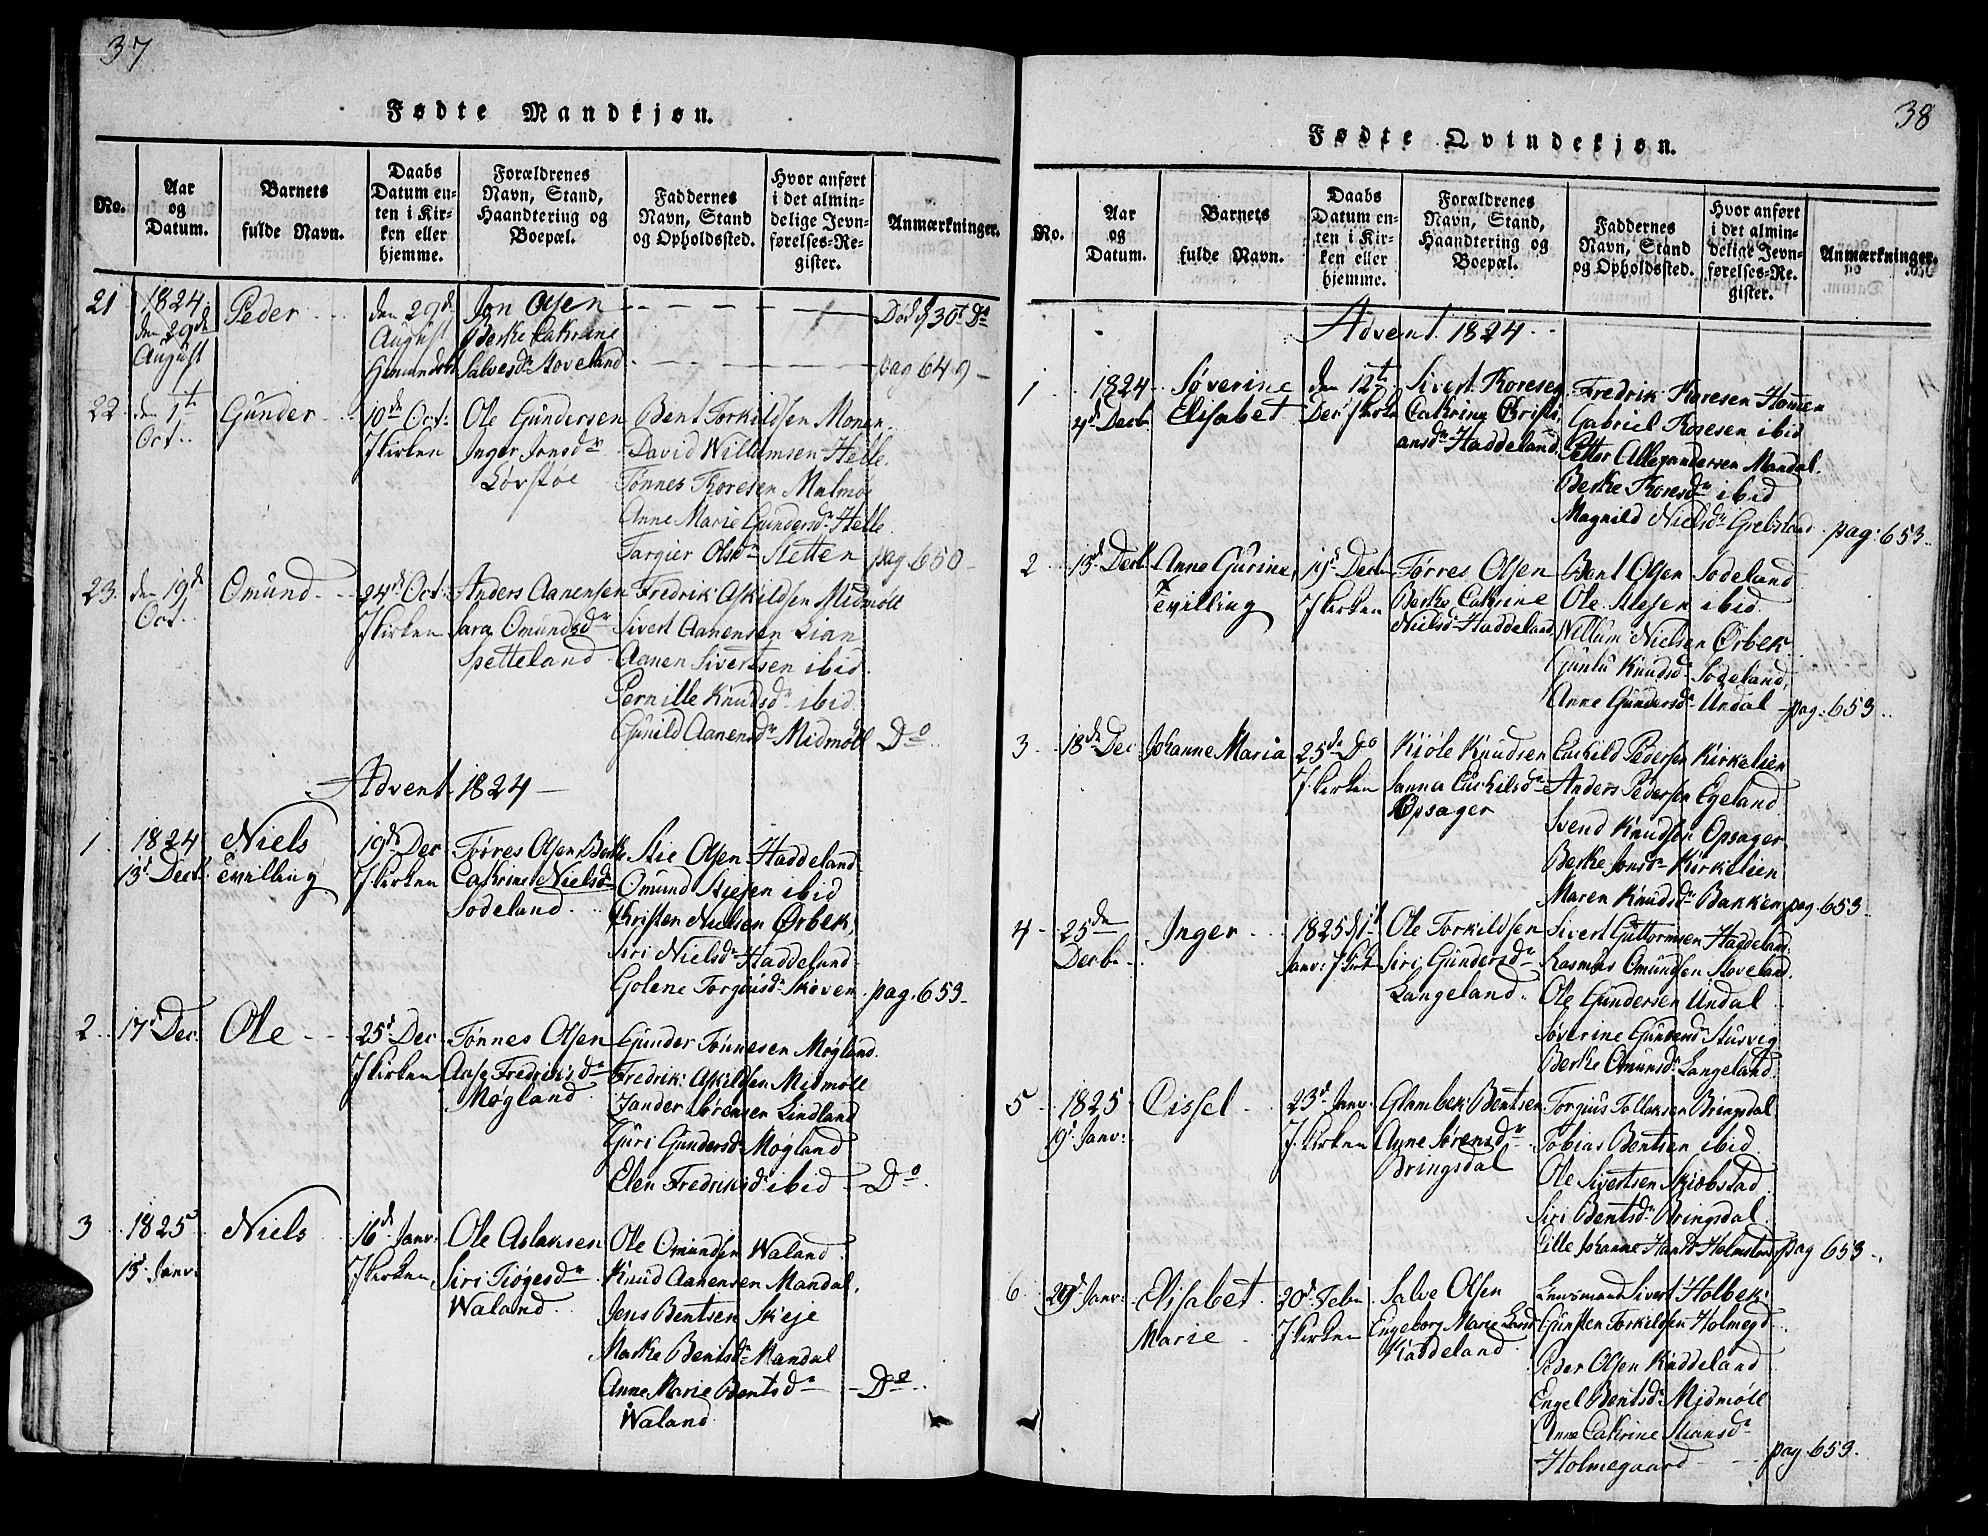 37
Fødte Mandkjøn.
No.
Aar
og
Datum.
Barnets
fulde Navn.
Daabs
Datum en-
ten i Kir-
ken eller
hjemme.
Forældrenes
Navn, Stand,
Haandtering og
Boepæl.
Faddernes
Navn, Stand
og Opholdssted.
Hvor anført
i det almin-
delige Jevn-
førelses-Re-
gister.
Anmærkninger.
21
1824
den 29de
August
Peder
den 29de
August
Jon Olsen
Berte Cathrine
Salvesdr Stoveland
Død d 30t Do
pag 649
22
den 1t
Oct.
Gunder
10de Oct:
I Kirken
Ole Gundersen
Inger Jonsdr
Løvskoe
Bent Torkildsen Monen
David Willumsen Helle
Tønnes Thoresen Malmø
Anne Marie Gundersdr Helle
Targier Olsdr Sletten
pag 650
23.
den 19de
Oct.
Omund
24de Oct:
I Kirken
Anders Aanensen
Sara Omundsdr
Spetteland
Fredrik Askildsen Midmøll
Sivert Aanensen Lian
Aanen Sivertsen ibid.
Pernille Knudsdr ibid
Gunild Aanensdr Midmøll
Do
Advent 1824
1
1824
13d Decb.
Niels
Tvilling
19de Dec
I Kirken
Torres Olsen Berte
Cathrine Nielsdr
Sodeland
Stie Olsen Haddeland
Omund Stiesen ibid
Christen Nielsen Ørbek
Siri Nielsdr Haddeland
Golene Torgiusdr Skoven
pag. 653
2
17d Dec.
Ole
25d Dec
I Kirken
Tønnes Olsen
Aase Fredriksdr
Møgland
Gunder Tønnesen Møgland
Fredrik Askildsen Midmøll
Zander Sørensen Lindland
Guri Gundersdr Møgland
Elen Fredriksdr ibid
Do
3
1825
15d Janv.
Niels
16de Janv.
I Kirken
Ole Aslaksen
Siri Tiøgesdr
Waland
Ole Omundsen Waland
Knud Aanensen Mandal
Jens Bentsen Skieje
Marte Bentsdr Mandal
Anne Marie Bentsdr
Waland
Do
38
Fødte Qvindekjøn.
No.
Aar
og
Datum.
Barnets
fulde Navn.
Daabs
Datum en-
ten i Kir-
ken eller
hjemme.
Forældrenes
Navn, Stand,
Haandtering og
Boepæl.
Faddernes
Navn, Stand
og Opholdssted.
Hvor anført
i det almin-
delige Jevn-
førelses-Re-
gister.
Anmærkninger.
Advent 1824
1
1824
4d Decb
Søverine
Elisabet
den 12te
Dec I Kirken
Sivert Thoresen
Cathrine Christi-
ansdr Haddeland
Fredrik Thoresen Homen
Gabriel Thoresen ibid
Petter Allexandersen Mandal
Berthe Thoresdr ibid
Magnild Nielsdr Grebstad
pag: 653
2
13d Decb
Anne Gurine
Tvilling
19d Decb
I Kirken
Torres Olsen
Berthe Cathrine
Nielsd Haddeland
Bent Olsen Sodeland
Ole Stiesen ibid
Willum Nielsen Ørbek
Gunlu Knudsd Sodeland
Anne Gundersd Undal
pag. 653
3
18de Dec
Johanne Maria
25de Do
I Kirken
Kiøle Knudsen
Janna Euchilsdr
Opsager
Euchild Pedersen Kirkelien
Anders Pedersen Egeland
Svend Knudsen Opsager
Berthe Jonsdr Kirkelien
Maren Knudsdr Banken
pag. 653
4
25de
Decbr
Inger
1825 d 1t
Janv: I Kirk
Ole Torkildsen
Siri Gundersdr
Langeland
Sivert Guttormsen Haddeland
Rasmus Omundsen Stoveland
Ole Gundersen Undal
Søverine Gundersd Stusvig
Berthe Omundsd Langeland
5
1825
19d Janv:
Cissel
23d Janv.
I Kirken
Glambek Bentsen
Anne Sørensdr
Bringsdal
Torgius Tollaksen Bringsdal
Tobias Bentsen ibid
Ole Sivertsen Skiøbstad
Siri Bentsdr Bringsdal
Lille Johanne Hansd Holmsten
pag 653
6
29d Janv:
Elisabet
Marie
20d Feb
I Kirken
Salve Olsen
Engeborg Marie Larsd
Kaddeland
Lensmand Sivert Holbek
Gunsten Torkildsen Holmegd
Peder Olsen Kaddeland
Engel Bentsdr Midmøll
Anne Cathrine Stiansdr
Holmegaard
pag. 653.